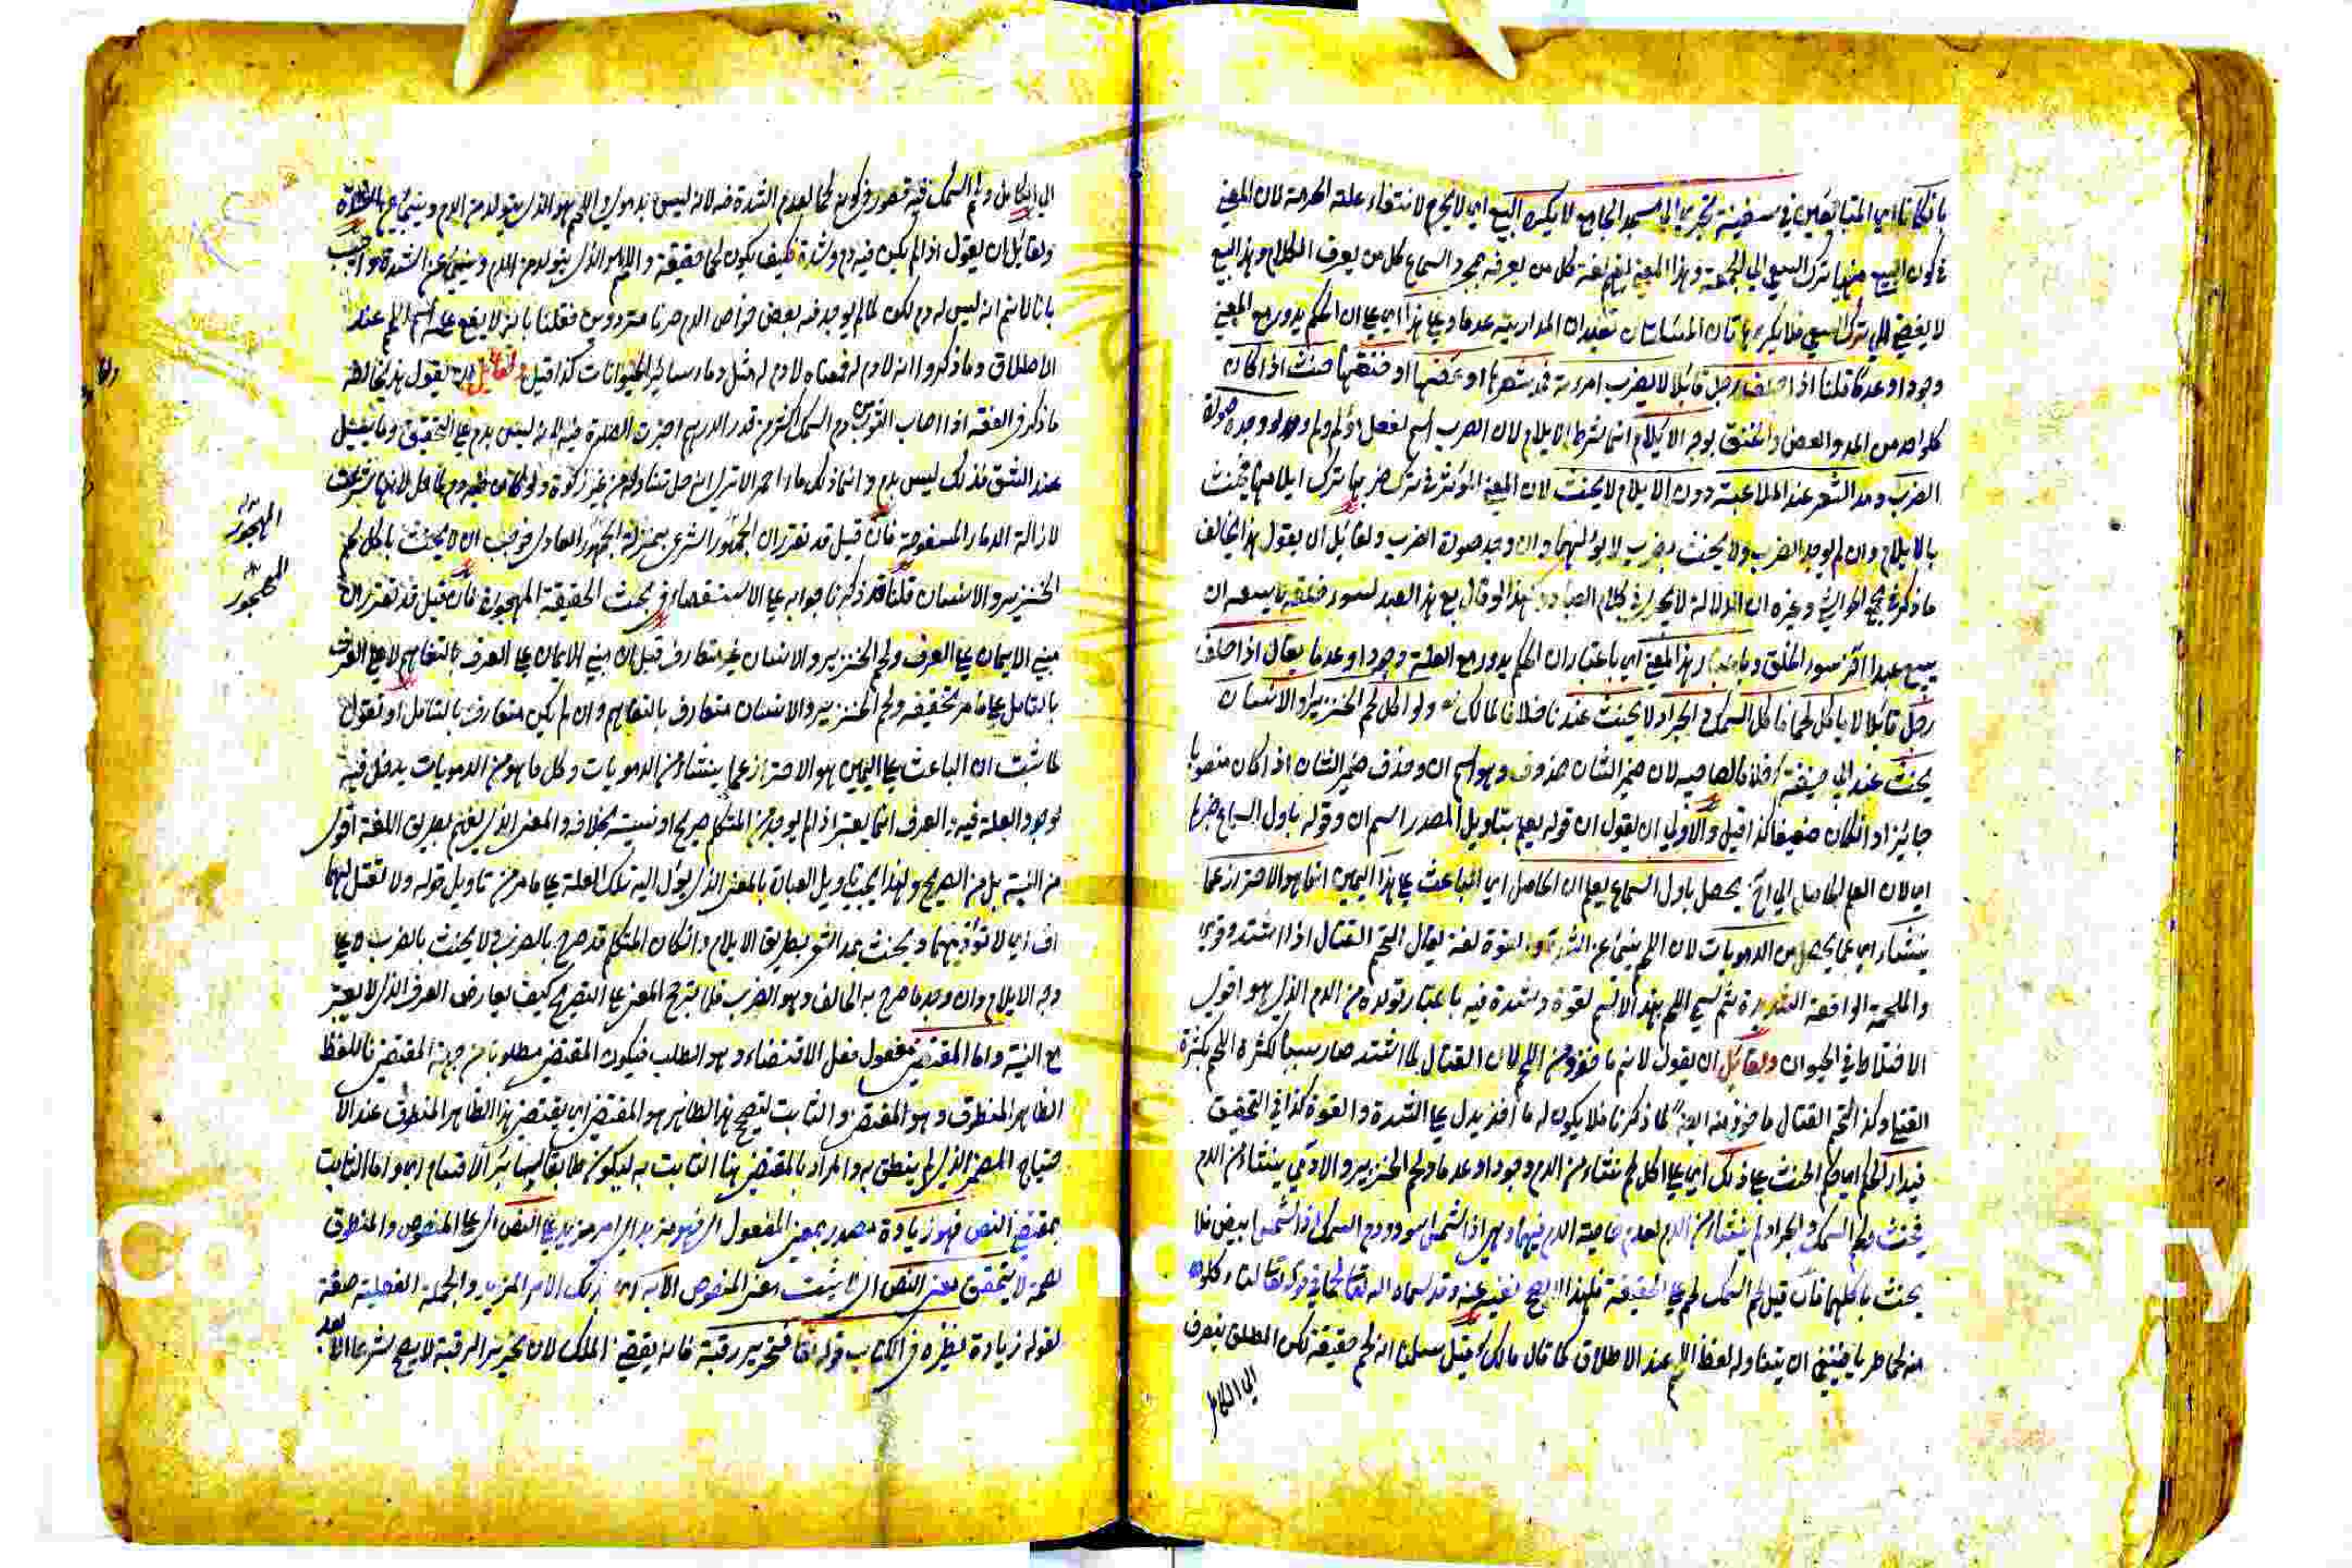 بان كانا اي المتبايعين في سفينة تجري الي مسجد الجامع لا يكره البيع اي لا يحرم لانتفاء علة الحرمة لان المعني
في كون البيع منهيا ترك السعي الي الجمعة وهذا المعني لغة كل من يعرفه بمجرد السماع كل من يعرف الكلام وهذا البيع
لا يفضي الي ترك السعي فلا يكره بها تان المسئلتان تفيدان المدارية عدما وعلي هذا اي علي ان الحكم يدور مع المعني
وجودا وعدما قلنا اذا حلف رجل قائلا لا يضرب امرءته فمد شعرها او عضها او خنقها حنث اذا كان
كل واحد من المد والعض والخنق بوجه الايلام انما شرط الايلام لان الضرب اسم لفعل مؤلم ولو وجد صورة
الضرب ومد الشعر عند الملاعبة دون الايلام لا يحنث لان المعني المؤثر في ترك ضربها ترك ايلامها فيحنث
بالايلام وان لم يوجد الضرب ولا يحنث بضرب لا يؤلمها وان وجد صورة الضرب ولقائل ان يقول هذا يخالف
ما ذكر في وغيره ان الدلالة لا تجري في كلام العباد لو قال بع هذا العبد لسوء خلقه يسعه ان
يبيع عبدا آخر سوء الخلق وباعتبار هذا المعني اي باعتبار ان الحكم يدور مع العلة وجودا وعدما يقال اذا حلف
رجل قائلا لا ياكل لحما فاكل السمك او الجراد لا يحنث عندنا خلافا لمالك ولو اكل لحم الخنزير او الانسان
يحنث عند ابي حنيفة خلافا لصاحبيه لان ضمير الشان محذوف وهو اسم ان وحذف ضمير الشان اذا كان منصوبا
جائز وان كان ضعيفا كذا قيل والاولي ان يقول ان قوله يعلم بتاويل المصدر اسم ان وقوله باول السماع خبرها
اي لان العلم الحاصل الي آخره يحصل باول السماع يعلم ان الحاصل اي الباعث علي هذا اليمين انما هو الاحتراز عما
ينشاء اي عما يحصل من الدمويات لان اللحم ينبئ عن الشدة والقوة لغة يقال التحم القتال اذا اشتد وقوي
والملحمة الواقعة الشديدة ثم سمي اللحم بهذا الاسم لقوة وشدة فيه باعتبار تولده من الدم الذي هو اقوي
الاخلاط في الحيوان ولقائل ان يقول لا نم ما خوذ من اللحم لان القتال لما اشتد صار سببا لكثرة اللحم بكثرة
القتلي وكذا التحم القتال ماخوذ منه ايضا لما ذكرنا فلا يكون له ماخذ يدل علي الشدة والقوة كذا في التحقيق
فيدار الحكم اي حكم الحنث علي ذلك اي علي اكل لحم نشاء من الدم وجودا وعدما ولحم الخنزير والادمي ينشاء من الدم
فيحنث ولحم السمك والجراد لم ينشاء من الدم لعدم خاصية الدم فيهما وهي اذا شمس اسود ودم السمك اذا شمس ابيض فلا
يحنث باكلهما فان قيل لحم السمك لحم علي الحقيقة فلهذا لا يصح نفيه عنه وقد سماه الله تعالي لحما في قوله تعالي لتاكلوا
منه لحما طريا فينبغي ان يتناوله لفظ اللحم عند الاطلاق كما قال مالك قيل سلمنا انه لحم حقيقة لكن المطلق ينصرف
الي الكامل
الي الكامل ولحم السمك فيه قصور في كونه لحما لعدم الشدة فيه لانه ليس بدموي واللحم هو الذي يتولد من الدم وينبئ عن الشدة
ولقائل ان يقول اذا لم يكن فيه دم وشدة فكيف يكون لحما حقيقة واللحم هو الذي يتولد من الدم وينبئ عن الشدة واجيب
بانا لا نم انه ليس له دم لكن لما لم يوجد فيه بعض خواص الدم صرنا مترددين فقلنا بانه لا يقع عليه اسم اللحم عند
الاطلاق وما ذكروا انه لا دم له فمعناه لا دم له مثل دماء سائر الحيوانات كذا قيل ولقائل ان يقول هذا يخالف
ما ذكر في الفقه اذا اصاب الثوب من دم السمك اكثر من قدر الدرهم اجزت الصلوة فيه لانه ليس بدم علي التحقيق وما يسيل
عند الشق فذلك ليس بدم وانما ذلك ماء احمر الا تري انه حل تناوله من غير زكوة ولو كان فيه دم لما حل لانها شرعت
لازالة الدماء المسفوحة فان قيل قد تقرر ان المهجور الشرعي بمنزلة المهجور العادي فوجب ان لا يحنث باكل لحم
الخنزير والانسان قلنا قد ذكرنا جوابه علي الاستقصاء في بحث الحقيقة المهجورة فان قيل قد تقرر ان
مبني الايمان علي العرف ولحم الخنزير والانسان غير متعارف قيل ان مبني الايمان علي العرف بالتفاهم لا علي العرف
بالتعامل علي ما مر تحقيقه ولحم الخنزير والانسان متعارف بالتفاهم وان لم يكن متعارف بالتعامل او نقول
لما ثبت ان الباعث علي اليمين هو الاحتراز عما ينشاء من الدمويات وكل ما هو من الدمويات يدخل فيه
لوجود العلة فيه والعرف انما يعتبر اذا لم يوجد من المتكلم صريح او نية بخلافه والمعني الذي يفهم بطريق اللغة اقوي
من النية بل من الصريح ولهذا يجب تاويل العبارة بالمعني الذي يؤل اليه تلك العلة علي ما مر من تاويل قوله ولا تقل لهما
اف اي لا تؤذيهما ويحنث بمد الشعر بطريق الايلام وان كان المتكلم قد صرح بالضرب ولا يحنث بالضرب لا علي
وجه الايلام وان وجد ما صرح به الحالف وهو الضرب فلما ترجح المعني علي التصريح كيف يعارض العرف الذي لا يعتبر
مع النية واما المقتضي مفعول فعل الاقتضاء وهو الطلب فيكون المقتضي مطلوبا من جهة المقتضي فاللفظ
الظاهر المنطوق وهو المقتضي والثابت لتصحيح هذا الظاهر هو المقتضي اي يقتضي هذا الظاهر المنطوق عند الا
حتياج المضمر الذي لم ينطق به والمراد بالمقتضي هنا الثابت به ليكون مطابقا لسائر الاقسام اي واما الثابت
بمقتضي النص فهو زيادة مصدر بمعني المفعول اي فهو مزيد اي امر مزيد علي النص اي علي المنصوص والمنطوق
لصحة لا يتحقق معني النص اي لا يثبت معني المنصوص الا به اي بذلك الامر المزيد والجملة الفعلية صفة
لقوله زيادة نظيره في الكتاب قوله تعالي فتحرير رقبة فانه يقتضي الملك لان تحرير الرقبة لا يصح شرعا الا بعد
المهجور
المهجور